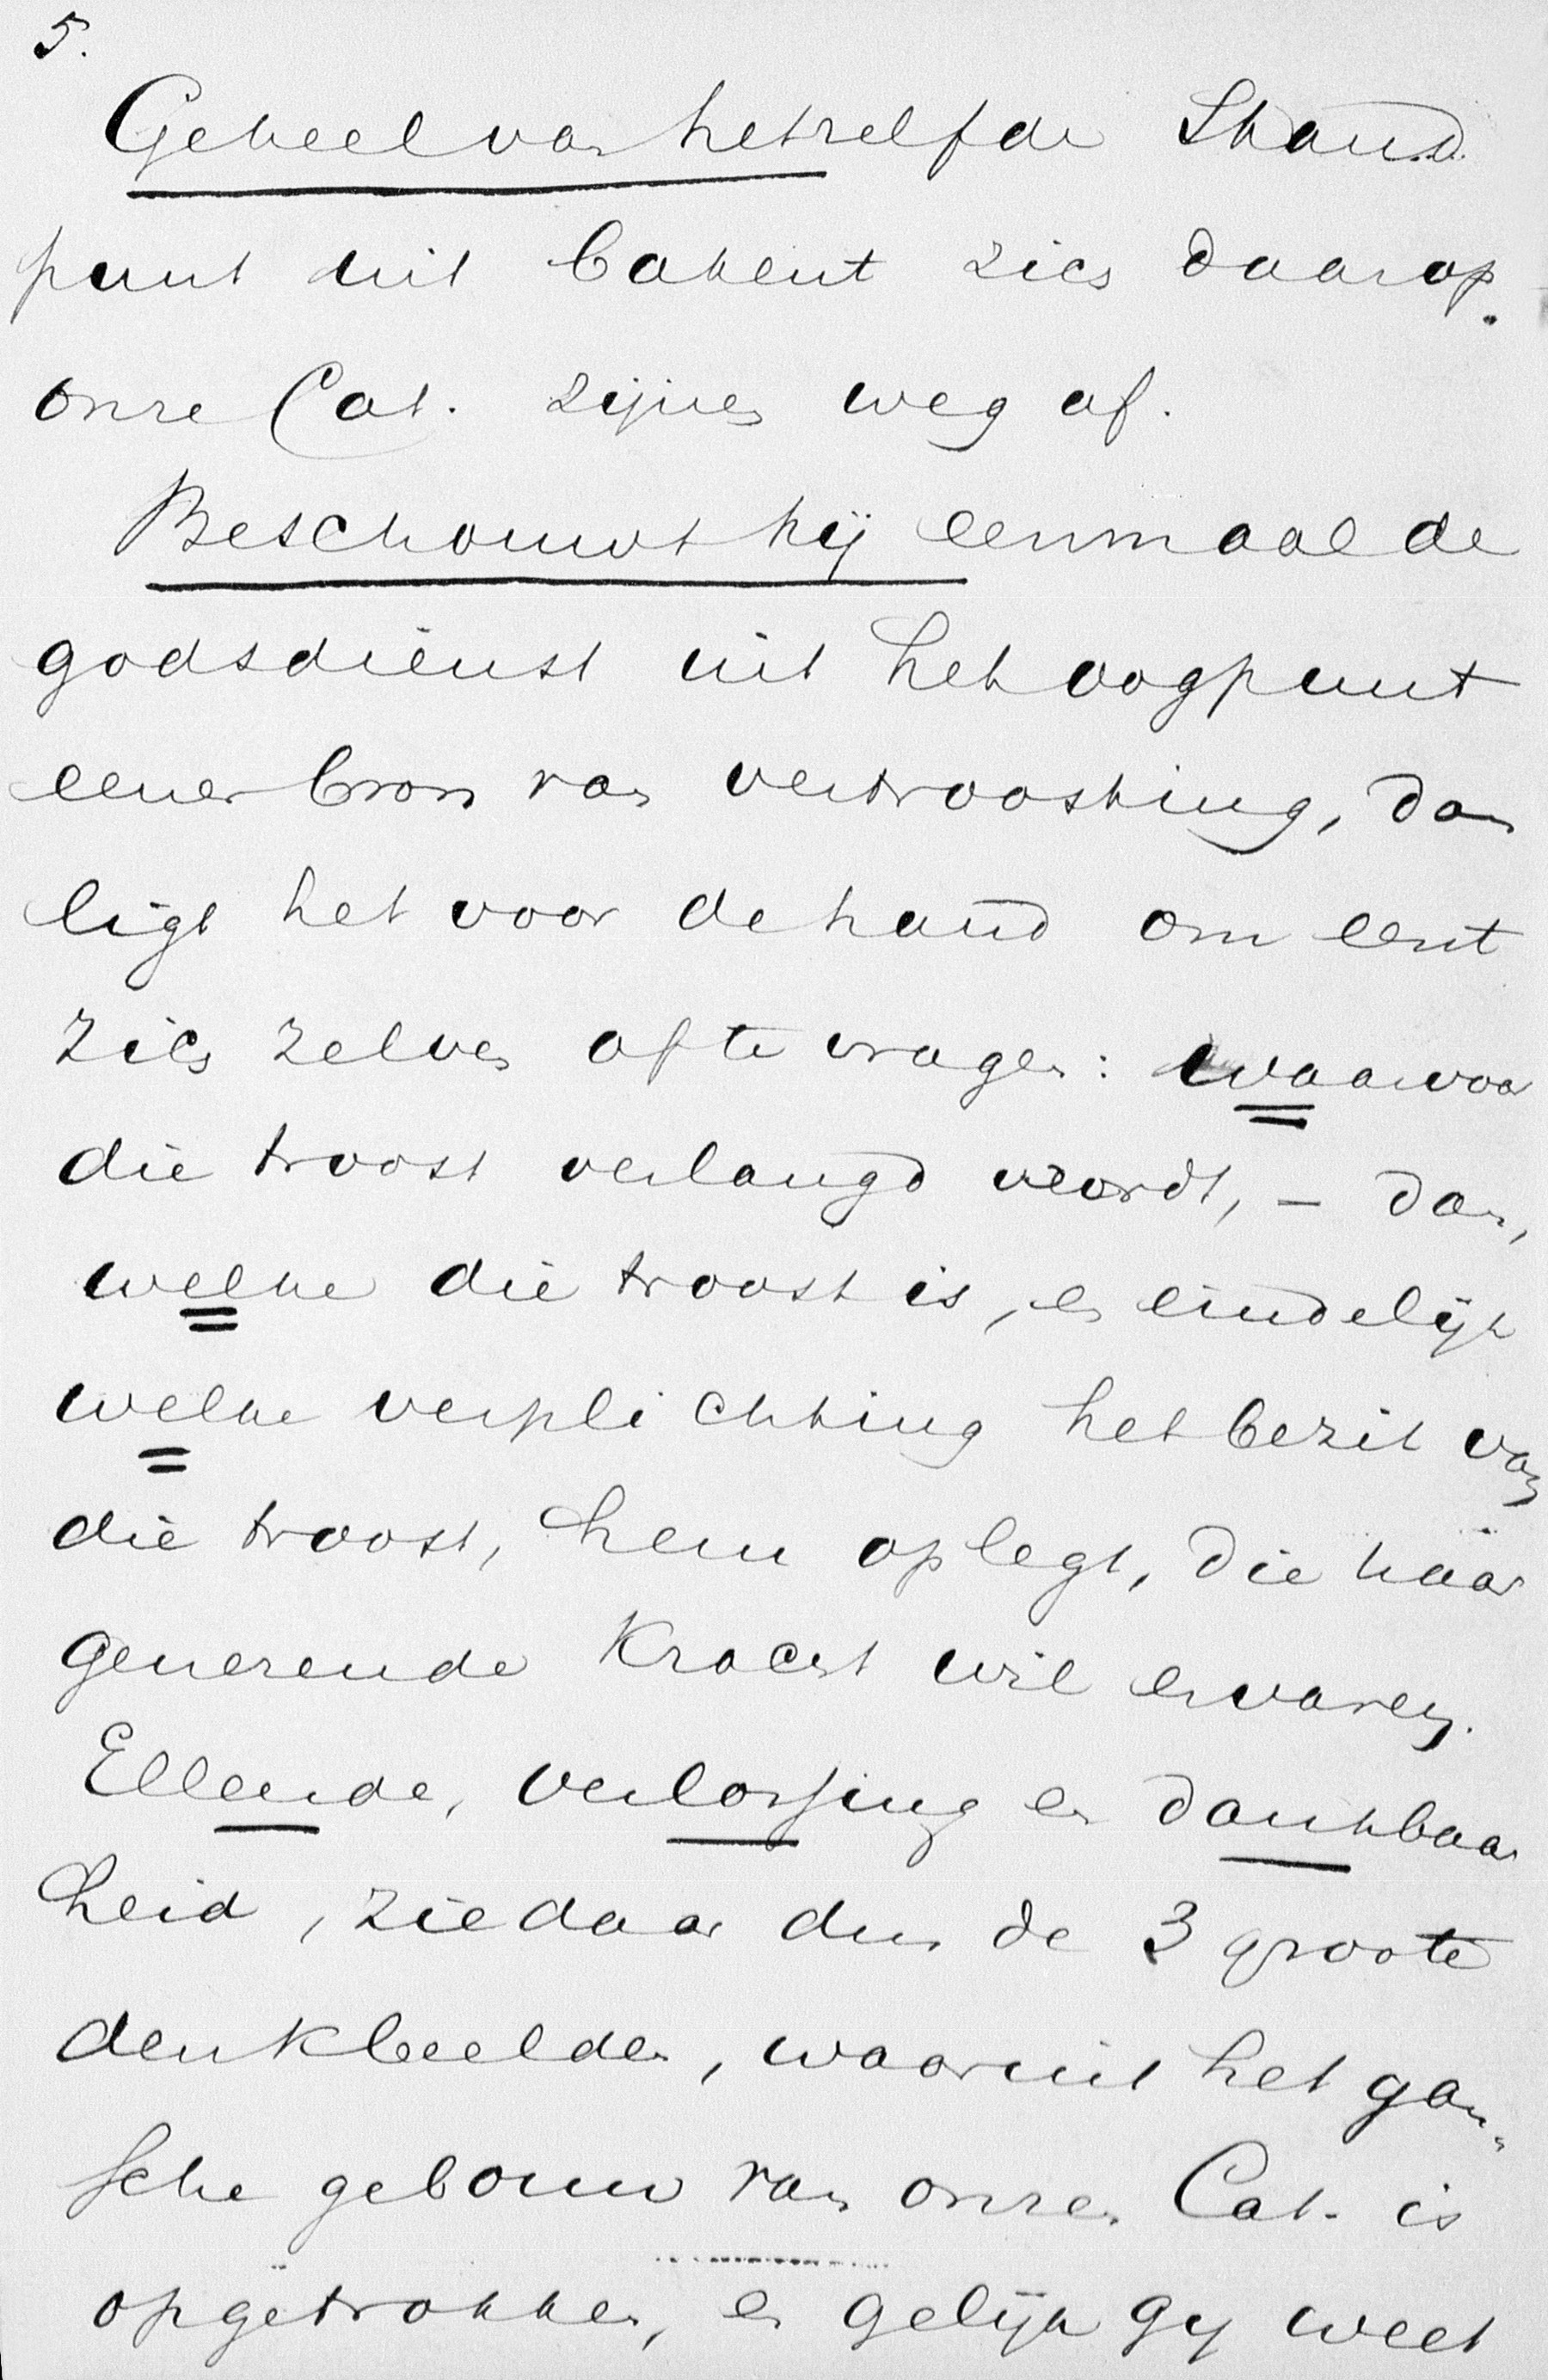 5.
Geheel van hetzelfde Stand
punt uit bakent zich daarop
onze Cat. zijnen weg af.
Beschouwt hij eenmaal de
godsdienst uit het oogpunt
eener bron van vertroosting, dan
ligt het voor de hand om eerst
zich zelven af te vragen: waarvoor
die troost verlangd wordt, – dan,
welke die troost is, en eindelijk
welke verplichting het bezit van
die troost, hem oplegt, die haar
genezende Kracht wil ervaren.
Ellende, verlossing en dankbaar
heid, ziedaar dus de 3 groote
denkbeelden, waaruit het gan-
sche gebouw van onzen Cat. is
opgetrokken, en gelijk gij weet